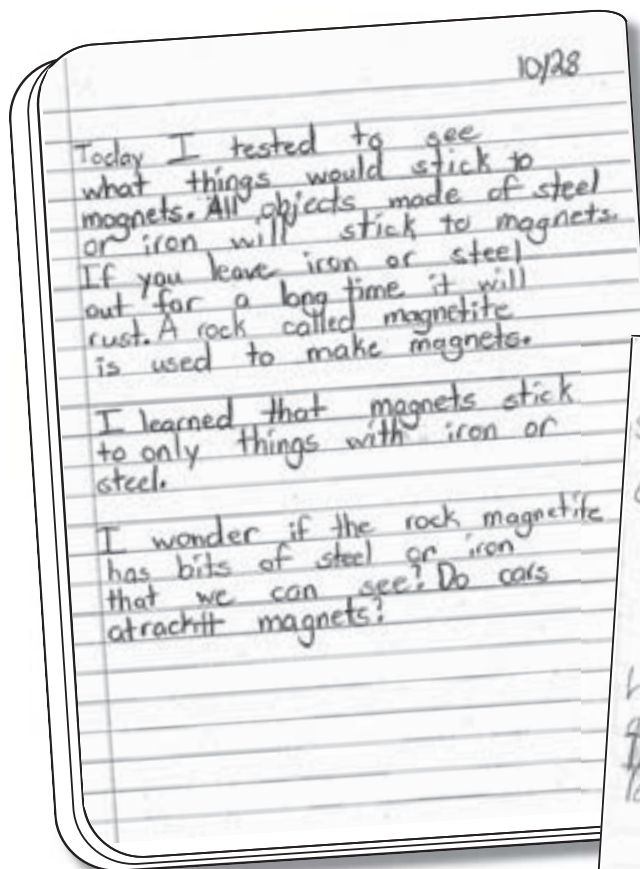 10/28
Today I tested to see
what things would stick to
magnets. All objects made of steel
or iron will stick to magnets.
If you leave iron or steel
out for a long time it will
rust. A rock called magnetite
is used to make magnets.
I learned that magnets stick
to only things with iron or
steel.
I wonder if the rock magnetite
has bits of steel or iron
that we can see? Do cars
magnets?